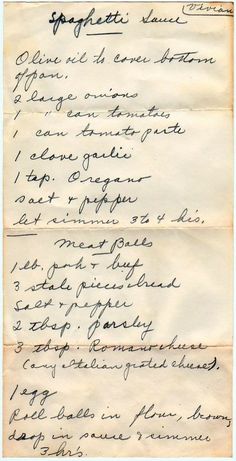 Vivian
Spaghetti Sauce
Olive oil to cover bottom
of pan.
2 large onions
1 " can tomatoes
1 can tomato paste
1 clove garlic
1 tsp. Oregano
salt & pepper
let simmer 3 to 4 hrs.
Meat Balls
1 lb. pork & beef
3 stale pieces bread
Salt & pepper
2 tbsp. parsley
3 tbsp. Romano cheese
(any Italian grated cheese).
1 egg
Roll balls in flour, brown,
drop in sauce & simmer
3 hrs.